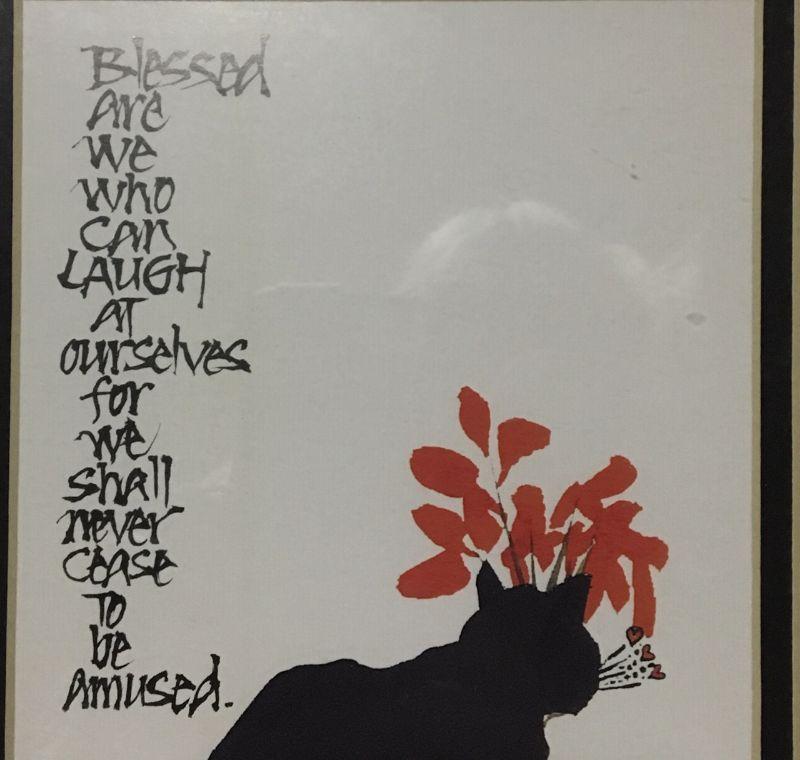 Blessed
are
we
who
can
LAUGH
at
ourselves
for
we
shall
never
cease
to
be
amused.